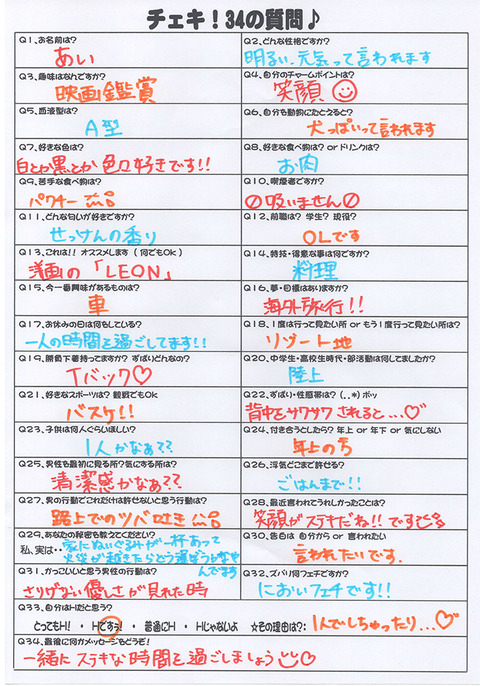 チェキ！34の質問♪
Q1、お名前は？
あい
Q2、どんな性格ですか？
明るい、元気って言われます
Q3、趣味はなんですか？
映画鑑賞
Q4、自分のチャームポイントは？
笑顔
Q5、血液型は？
A型
Q6、自分も動物にたとえると？
犬っぽいって言われます
Q7、好きな色は？
白とか黒とか色々好きです!!
Q8、好きな食べ物は？ or ドリンクは？
お肉
Q9、苦手な食べ物は？
パクチー
Q10、喫煙者ですか？
吸いません
Q11、どんな匂いが好きですか？
せっけんの香り
Q12、前職は？ 学生？ 現役？
OLです
Q13、これは!! オススメします（何でもOk）
洋画の「LEON」
Q14、特技・得意な事は何ですか？
料理
Q15、今一番興味があるものは？
車
Q16、夢・目標はありますか？
海外旅行!!
Q17、お休みの日は何をしている？
一人の時間を過ごしてます!!
Q18、1度は行って見たい所 or もう1度行って見たい所は？
リゾート地
Q19、勝負下着持ってますか？ ずばりどんなの？
Tバック♡
Q20、中学生・高校生時代・部活動は何してましたか？
陸上
Q21、好きなスポーツは？ 観戦でもOK
バスケ!!
Q22、ずばり・性感帯は？（．．*）ポッ
背中をサワサワされると...♡
Q23、子供は何人ぐらいほしい？
1人かなぁ??
Q24、付き合うとしたら？ 年上 or 年下 or 気にしない
年上のち
Q25、男性も最初に見る所？気にする所は？
清潔感かなぁ??
Q26、浮気どこまで許せる？
ごはんまで!!
Q27、男の行動でこれだけは許せないと思う行動は？
路上でのツバ吐き
Q28、最近言われてうれしかったことは？
笑顔がステキだね!!です
Q29、あなたの秘密も教えてください？
私、実は・・
家にぬいぐるみが一杯あって
火災が起きたらどう運ぼうかなや
んでます
Q30、告白は 自分から or 言われたい
言われたいです.
Q31、かっこいいと思う男性の行動は？
さりげない優しさが見れた時
Q32、ズバリ何フェチですか？
においフェチです!!
Q33、自分はHだと思う？
とってもH! ・ Hですぅ! ・ 普通にH ・ Hじゃないよ ☆その理由は？：
1人でしちゃったり...♡
Q34、最後に何かメッセージもどうぞ！
一緒にステキな時間を過ごしましょう♡